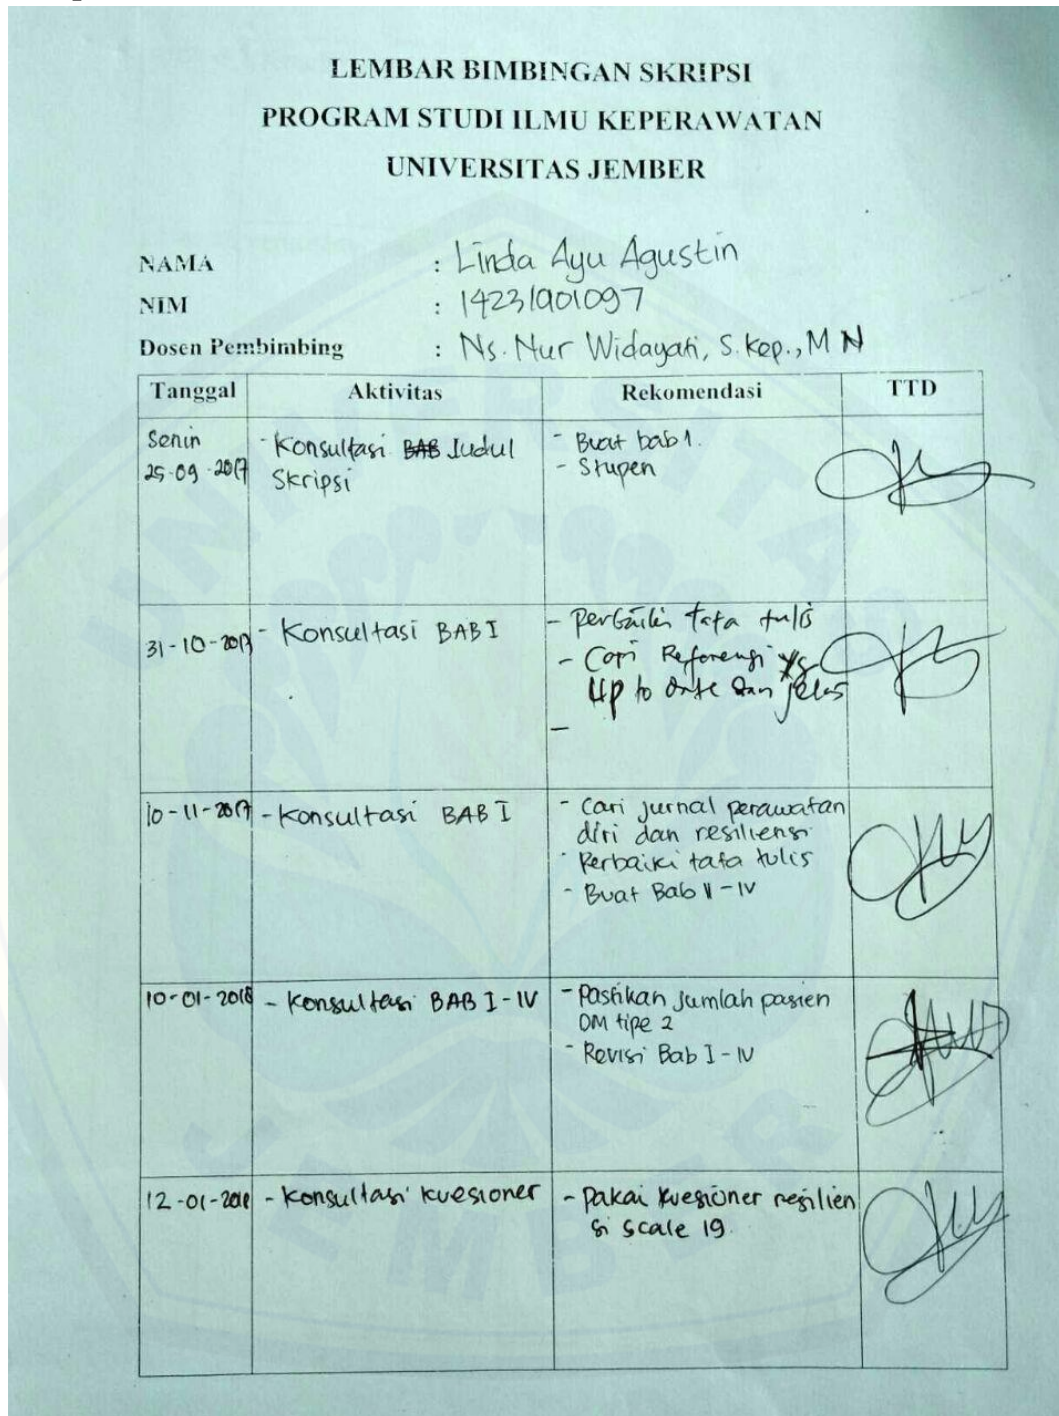 LEMBAR BIMBINGAN SKRIPSI
PROGRAM STUDI ILMU KEPERAWATAN
UNIVERSITAS JEMBER
NAMA : Linda Ayu Agustin
NIM : 142319101097
Dosen Pembimbing : Ns. Nur Widayati, S.Kep., MN
Tanggal Aktivitas Rekomendasi TTD
Senin
25-09-2017
- Konsultasi BAB Judul
Skripsi
- Buat bab 1.
- Stupen
31-10-2017
- Konsultasi BAB I
- Perbaiki tata tulis
- Cari Referensi yg
Up to date dan jelas
-
10-11-2017
- Konsultasi BAB I
- Cari jurnal perawatan
diri dan resiliensi
- Perbaiki tata tulis
- Buat Bab II-IV
10-01-2018
- Konsultasi BAB I-IV
- Pastikan Jumlah pasien
DM tipe 2
- Revisi Bab I-IV
12-01-2018
- Konsultasi kuesioner
- Pakai kuesioner resilien
si scale 19.
UNIVERSITAS
JEMBER